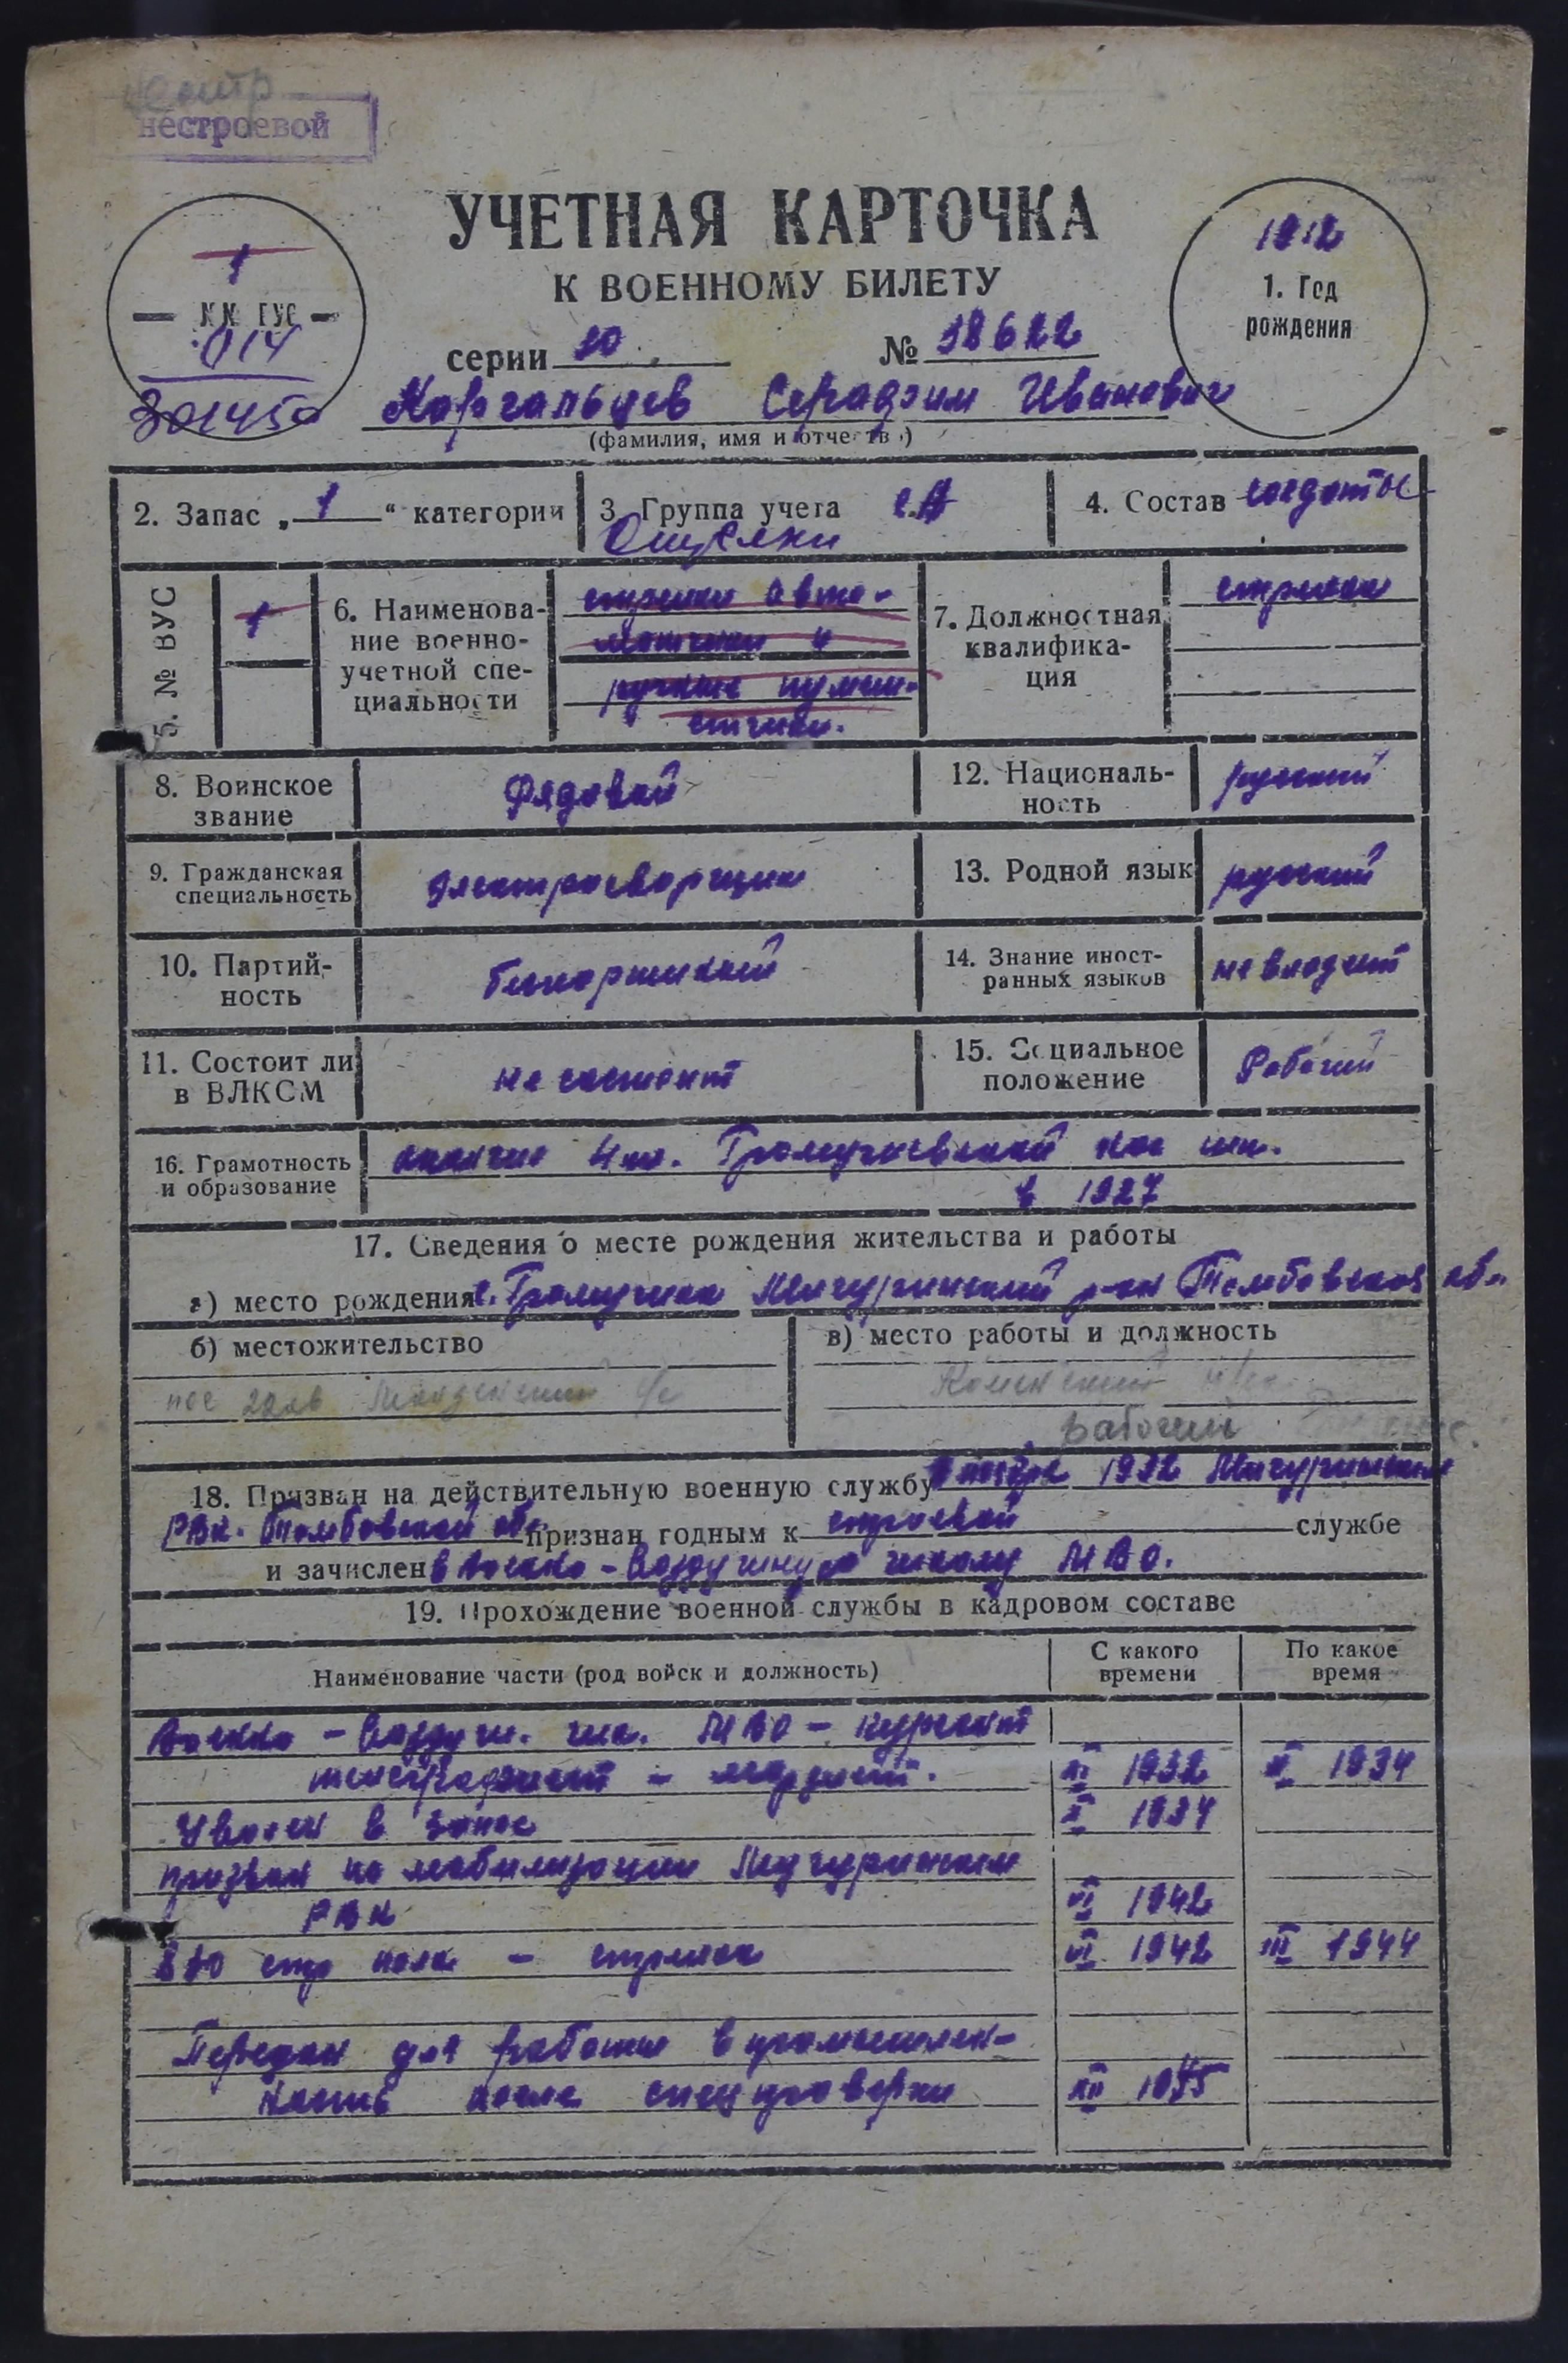 нестроевой
УЧЕТНАЯ КАРТОЧКА
К ВОЕННОМУ БИЛЕТУ
1
№№ ГУС
014
301450
1912
1. Год
рождения
серии 10 № 18622
Каргальцев Серафим Иванович
(фамилия, имя и отчество)
2. Запас „1“ категории
3. Группа учета с.А
4. Состав солдаты
5. № ВУС
1
6. Наименова-
ние военно-
учетной спе-
циальности
стрелки авто-
матчики и
ручные пулем-
етчики.
7. Должностная
квалифика-
ция
стрелок
8. Воинское
звание
Рядовой
12. Националь-
ность
русский
9. Гражданская
специальность
Электросварщик
13. Родной язык
русский
10. Партий-
ность
беспартийный
14. Знание иност-
ранных языков
не владеет
11. Состоит ли
в ВЛКСМ
не состоит
15. Социальное
положение
Рабочий
16. Грамотность
и образование
окончил 4 кл.
в 1927
17. Сведения о месте рождения жительства и работы
а) место рождения с. Мичуринский р-он Тамбовская обл
б) местожительство
в) место работы и должность
рабочий
18. Призван на действительную военную службу ноября 1932 Мичуринским
РВК. Тамбовской обл. признан годным к строевой службе
и зачислен в Военно-Воздушную школу МВО.
19. Прохождение военной службы в кадровом составе
Наименование части (род войск и должность)
С какого
времени
По какое
время
Военно-Воздуш. шк. МВО - курсант
телеграфист - морзист. XI 1932 1934
Уволен в запас 1934
призван по мобилизации Мичуринским
РВК VI 1942
стр полк - стрелок VI 1942 III 1944
Передан для работы в промышлен-
ность после спецпроверки XII 1945